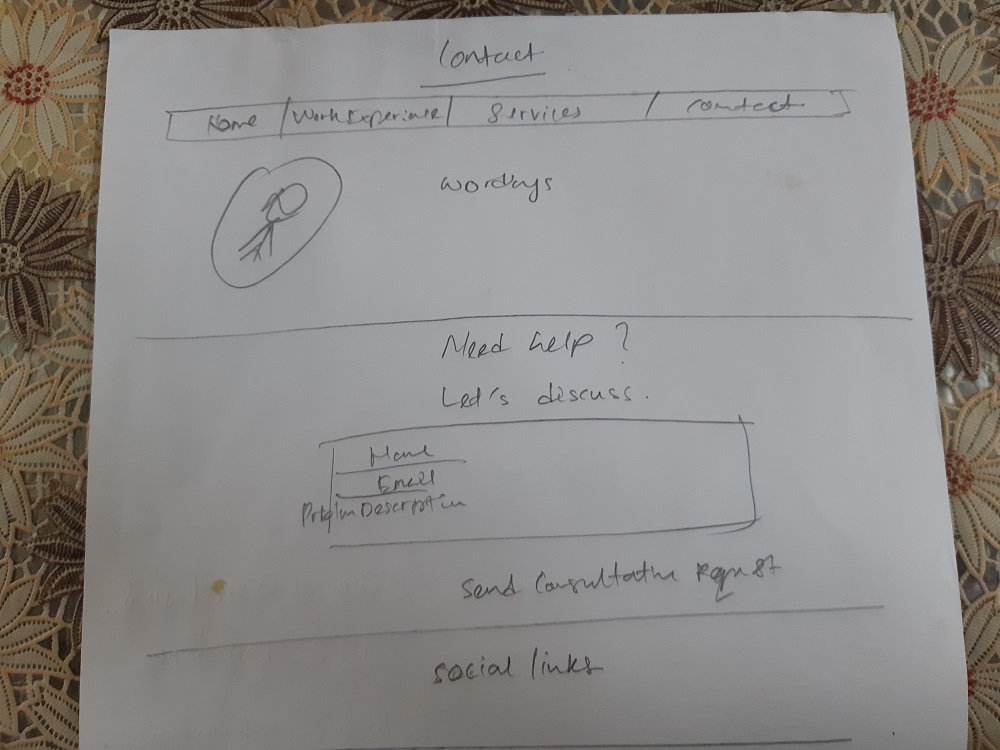 Contact
Home | Work Experience | Services | Contact
Need help ?
Let's discuss.
Name
Email
Problem Description
Send Consultation request
Social links